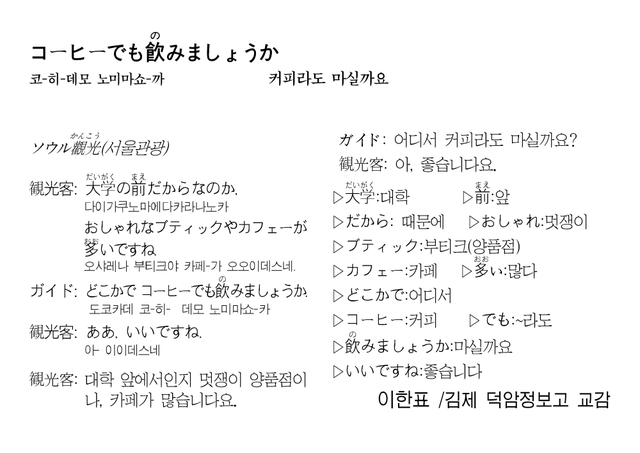 コーヒーでも飲みましょうか
코-히-데모 노미마쇼-까 커피라도 마실까요
ソウル観光(서울관광)
観光客: 大学の前だからなのか.
다이가쿠노마에다카라나노카
おしゃれなブティックやカフェーが
多いですね
오샤레나 부티크야 카페-가 오오이데스네.
ガイド: どこかで コーヒーでも飲みましょうか.
도코카데 코-히- 데모 노미마쇼-카
観光客: ああ, いいですね.
아- 이이데스네
観光客: 대학 앞에서인지 멋쟁이 양품점이
나, 카페가 많습니다요.
ガイド: 어디서 커피라도 마실까요?
観光客: 아, 좋습니다요.
▷大学:대학 ▷前:앞
▷だから: 때문에 ▷おしゃれ:멋쟁이
▷ブティック:부티크(양품점)
▷カフェー:카페 ▷多い:많다
▷どこかで:어디서
▷コーヒー:커피 ▷でも:~라도
▷飲みましょうか:마실까요
▷いいですね:좋습니다
이한표 /김제 덕암정보고 교감